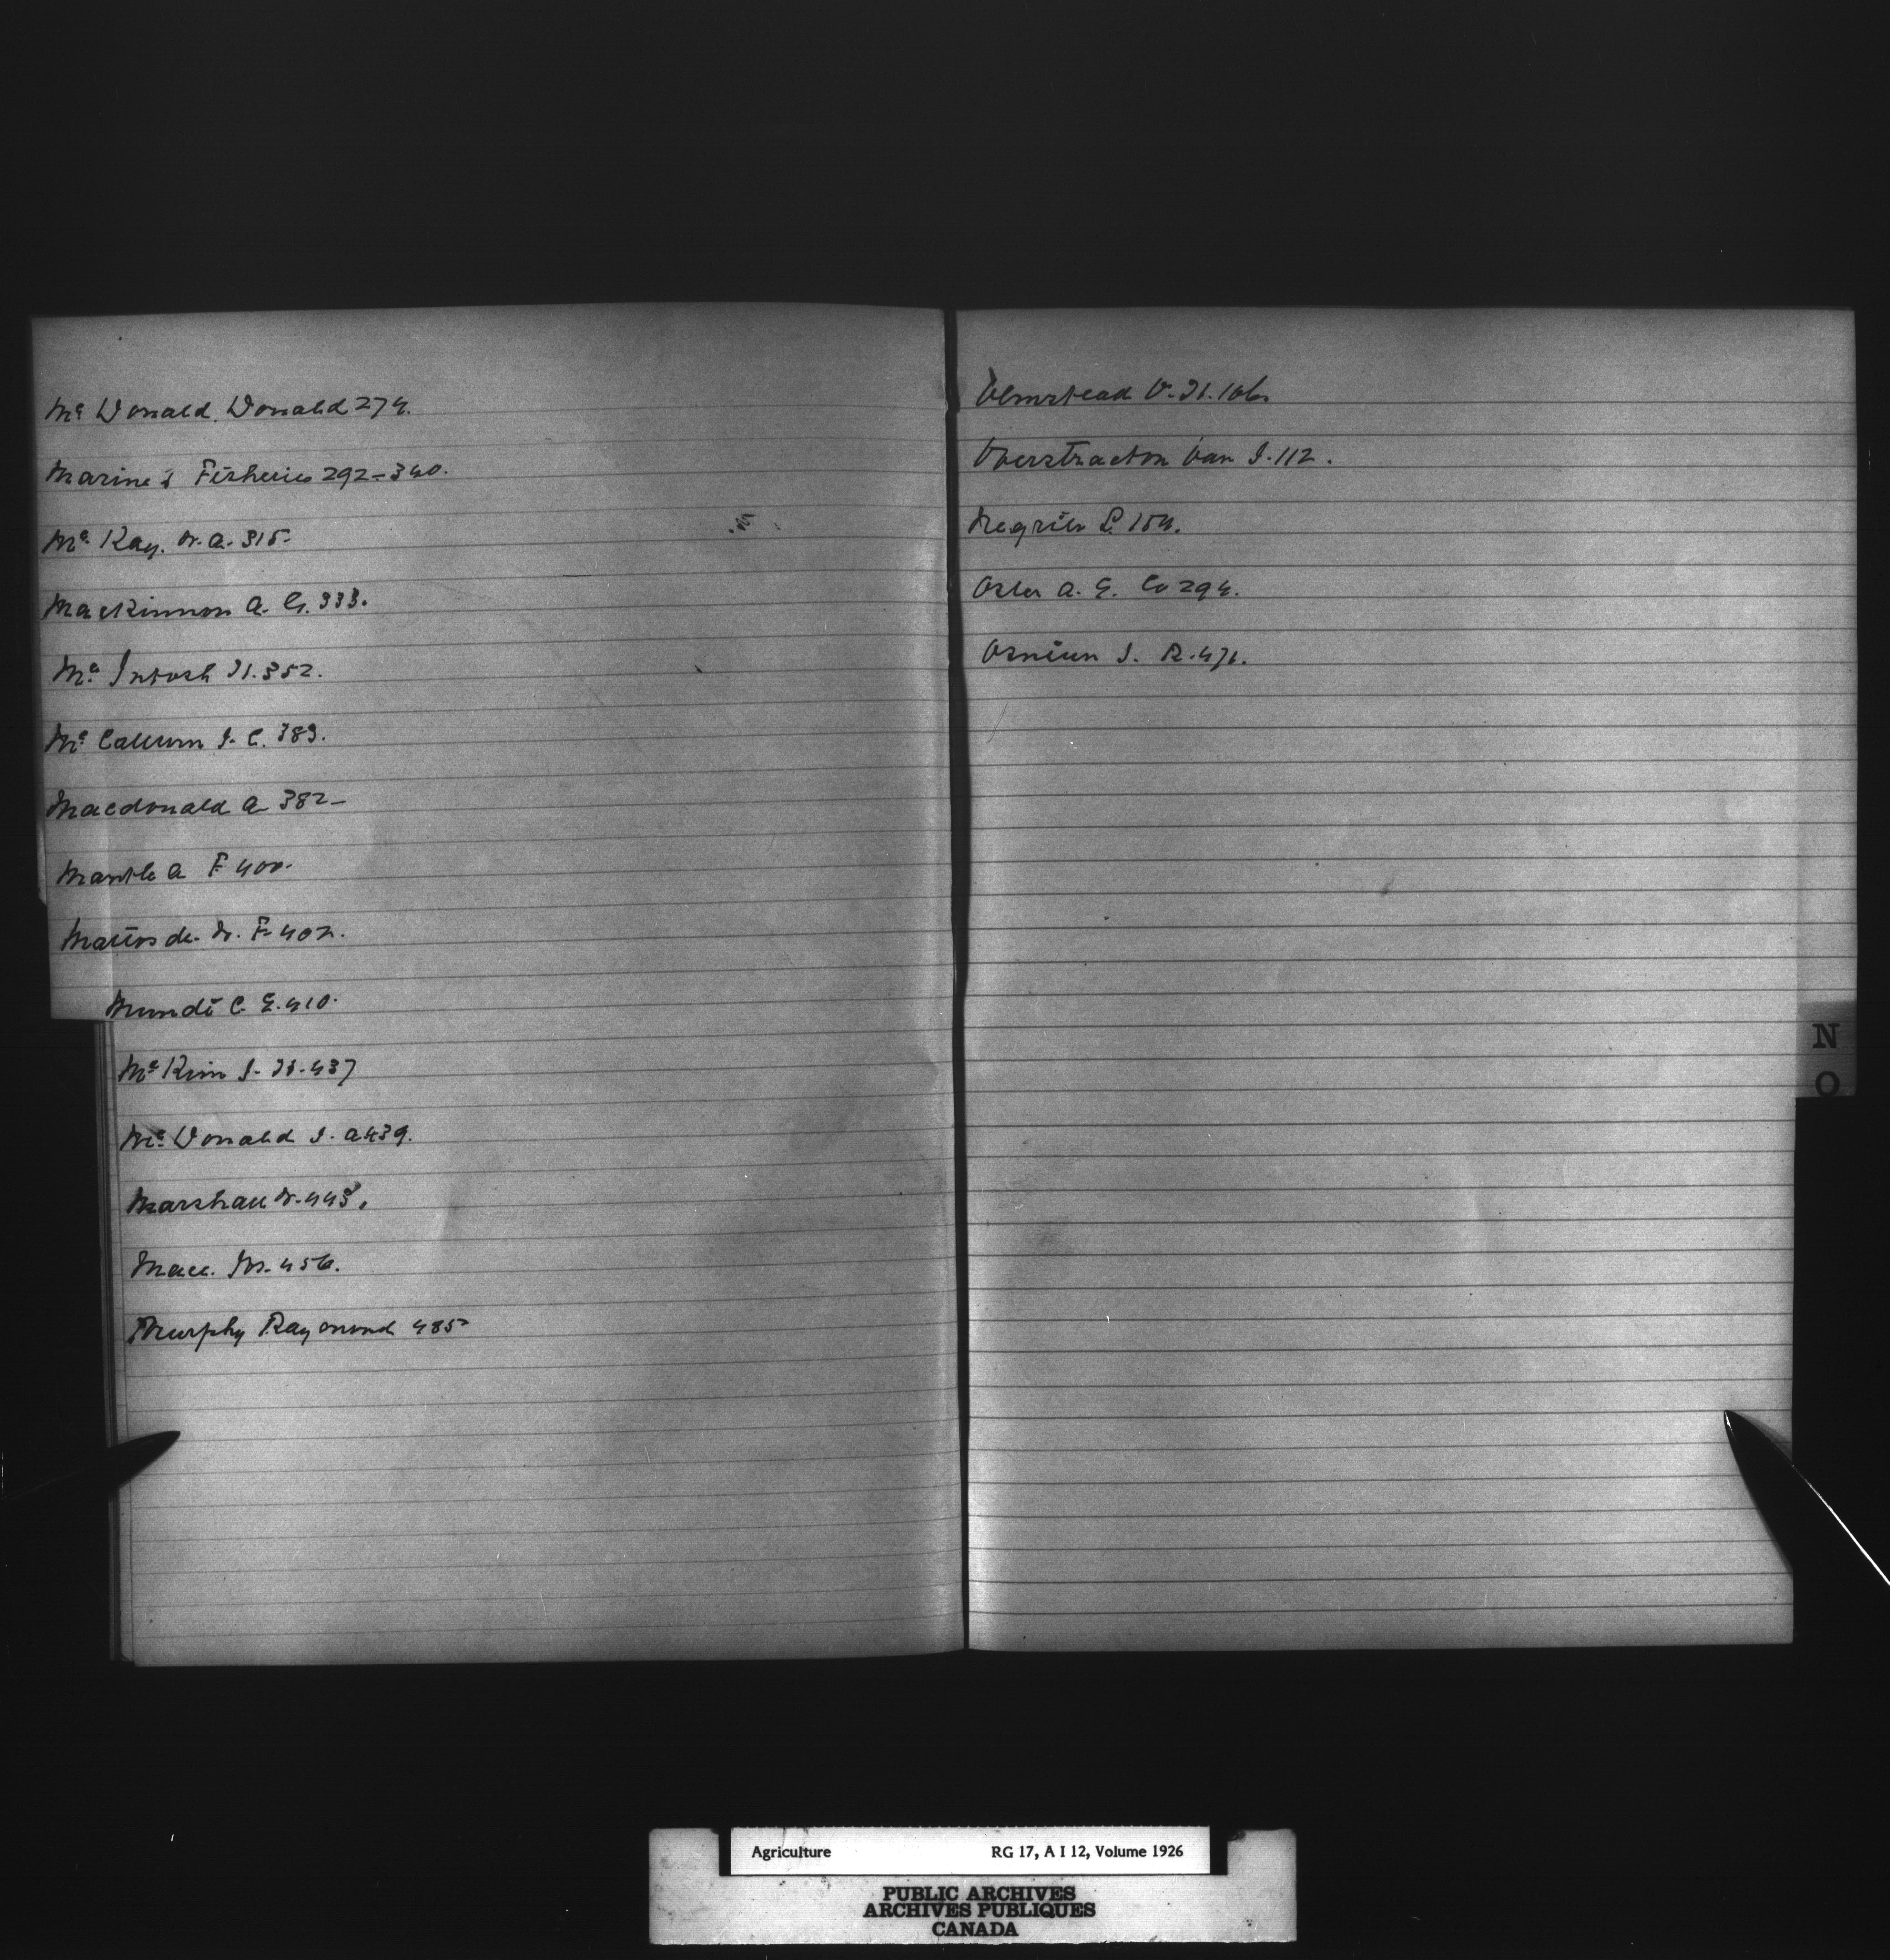 Mc Donald Donald 274.
Marine & Fisheries 292-340.
Mc Kay. W. A. 315-
MacKinnon A. G. 333.
Mc Intosh H. 352.
Mc Callum J. C. 383.
Macdonald A 382-
Mantle A F 400.
Mattos de. W. F. 402.
Mundi C. E. 410.
Mc Kim J. H. 437
Mc Donald J. A 439.
Marshall W. 445.
Mace. 456.
Murphy Raymond 485-
Olmstead V. H. 106.
Overstraeton Van J. 112.
Negrin L. 154.
Osler A. E. Co 294.
J. R. 471.
N
O
Agriculture RG 17, A I 12, Volume 1926
PUBLIC ARCHIVES
ARCHIVES PUBLIQUES
CANADA